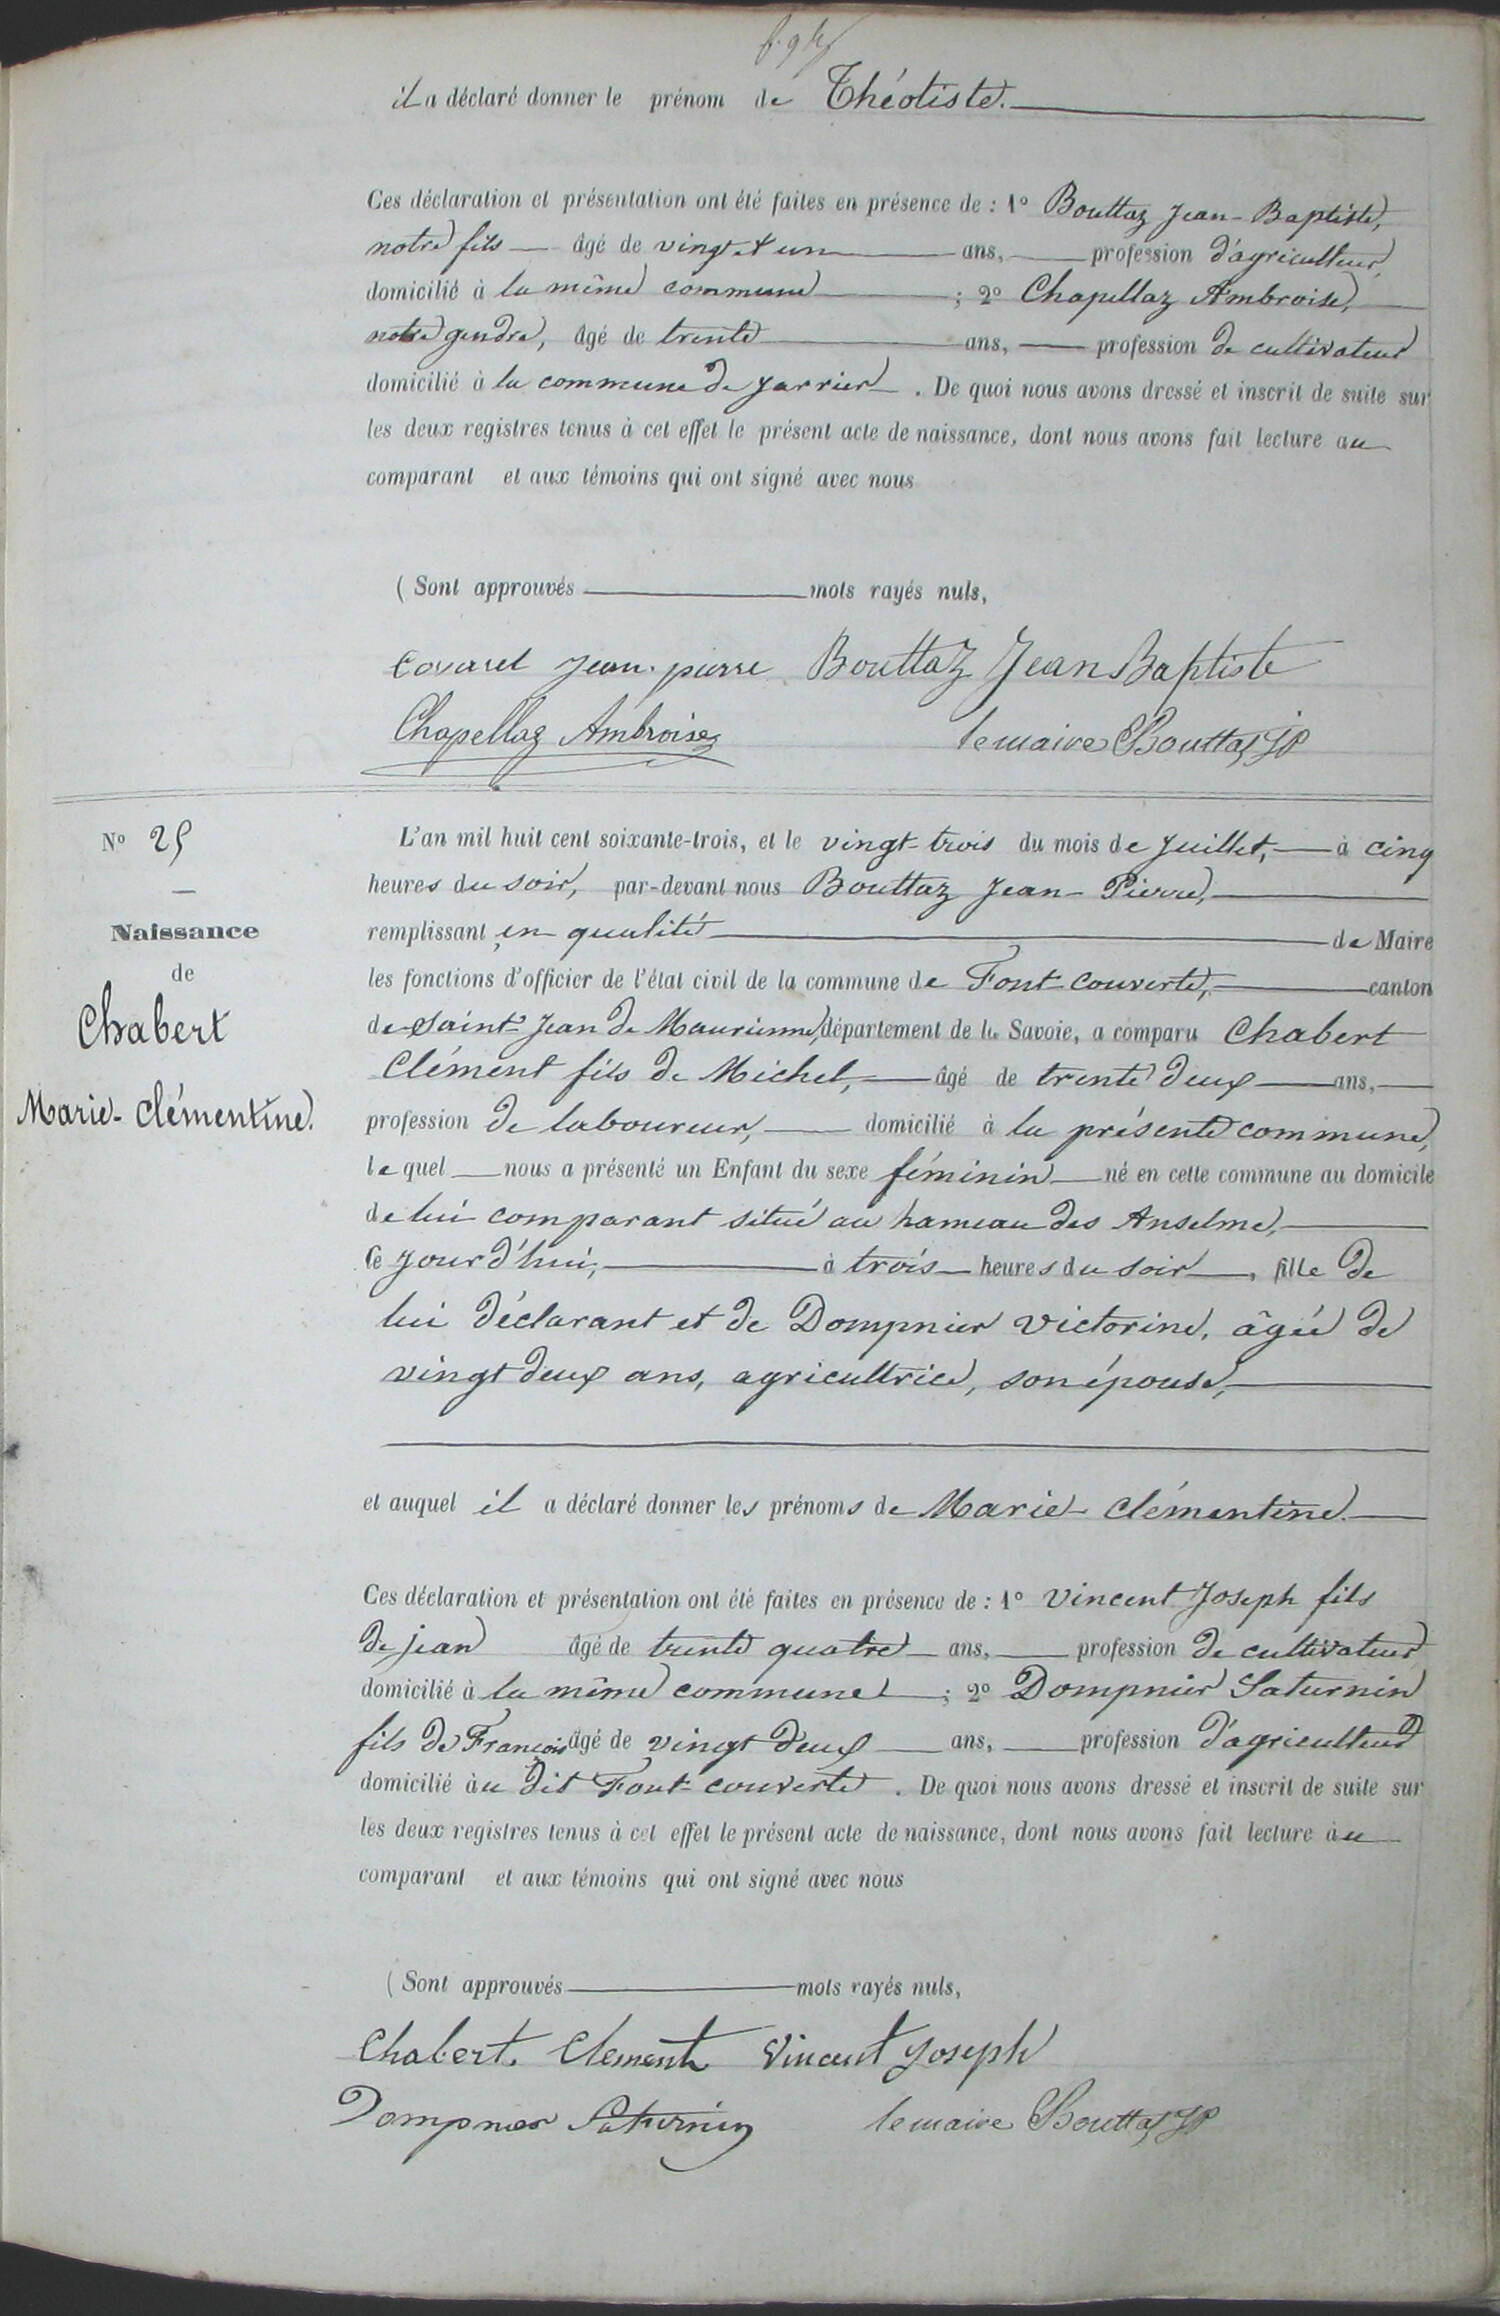 il a déclaré donner le prénom de Théotiste.
Ces déclaration et présentation ont été faites en présence de : 1° Bouttaz Jean-Baptiste,
notre fils âgé de vingt et un ans, profession d'agriculteur
domicilié à la même commune ; 2° Chapellaz Ambroise,
notre gendre, âgé de trente ans, profession de cultivateur
domicilié à la commune de Jarrier . De quoi nous avons dressé et inscrit de suite sur
les deux registres tenus à cet effet le présent acte de naissance, dont nous avons fait lecture au
comparant et aux témoins qui ont signé avec nous
( Sont approuvés mots rayés nuls,
Covarel Jean-pierre Bouttaz Jean Baptiste
Chapellaz Ambroise
le maire Bouttaz JP
N° 25
Naissance
de
Chabert
Marie-Clémentine.
L'an mil huit cent soixante-trois, et le vingt-trois du mois de Juillet, à cinq
heures du soir, par-devant nous Bouttaz Jean-Pierre,
remplissant en qualité de Maire
les fonctions d'officier de l'état civil de la commune de Font-couverte, canton
de Saint Jean de Maurienne, département de la Savoie, a comparu Chabert
Clément fils de Michel, âgé de trente deux ans,
profession de laboureur, domicilié à la présente commune,
lequel nous a présenté un Enfant du sexe féminin né en cette commune au domicile
de lui comparant situé au hameau des Anselme,
Ce Jourd'hui, à trois heures du soir, fille de
lui déclarant et de Dompnier Victorine, âgée de
vingt deux ans, agricultrice, son épouse,
et auquel il a déclaré donner les prénoms de Marie-Clémentine.
Ces déclaration et présentation ont été faites en présence de : 1° Vincent Joseph fils
de jean âgé de trente quatre ans, profession de cultivateur
domicilié à la même commune ; 2° Dompnier Saturnin
fils de François âgé de vingt deux ans, profession d'agriculteur
domicilié àu dit Font-couverte . De quoi nous avons dressé et inscrit de suite sur
les deux registres tenus à cet effet le présent acte de naissance, dont nous avons fait lecture àu
comparant et aux témoins qui ont signé avec nous
( Sont approuvés mots rayés nuls,
Chabert Clement Vincent Joseph
Dompnier Saturnin le maire Bouttaz JP